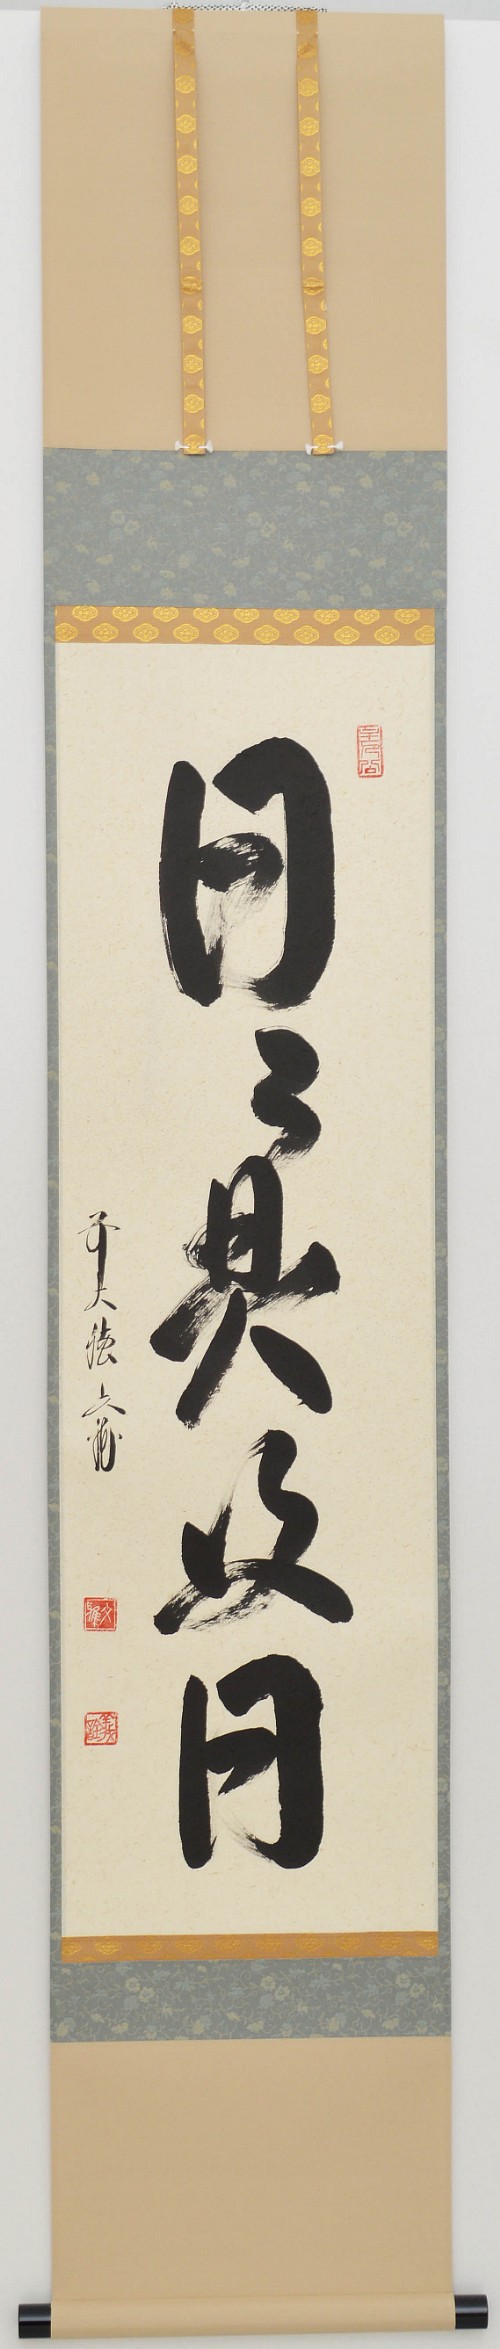 日々是好日
前大徳文雅